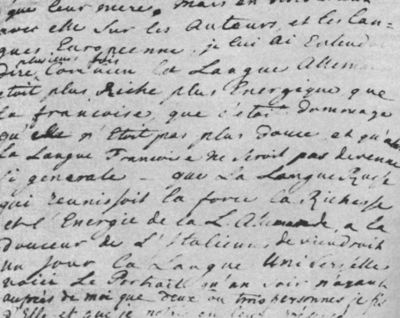 que leur mere. Mais en
avec elle sur les Auteurs, et les Lan=
gues Europeenne. je lui ai Entendu
dire plusieurs fois Combien la Langue Allem
etoit plus Riche plus Energeque que
la francoise, que c'etoit dommage
qu'elle n'Etoit pas plus douce, et qu'a
la Langue Francoise ne seroit pas devenue
si generale - que La Langue Russe
qui reunissoit la force la Richesse
et l'Energie de la L. Allemande, a la
douceur de L'Italien, deviendroit
un jour la Langue Universelle
voici Le Portrait qu'un soir n'ayant
aupres de moi que deux ou trois personnes je fis
d'Elle et que je